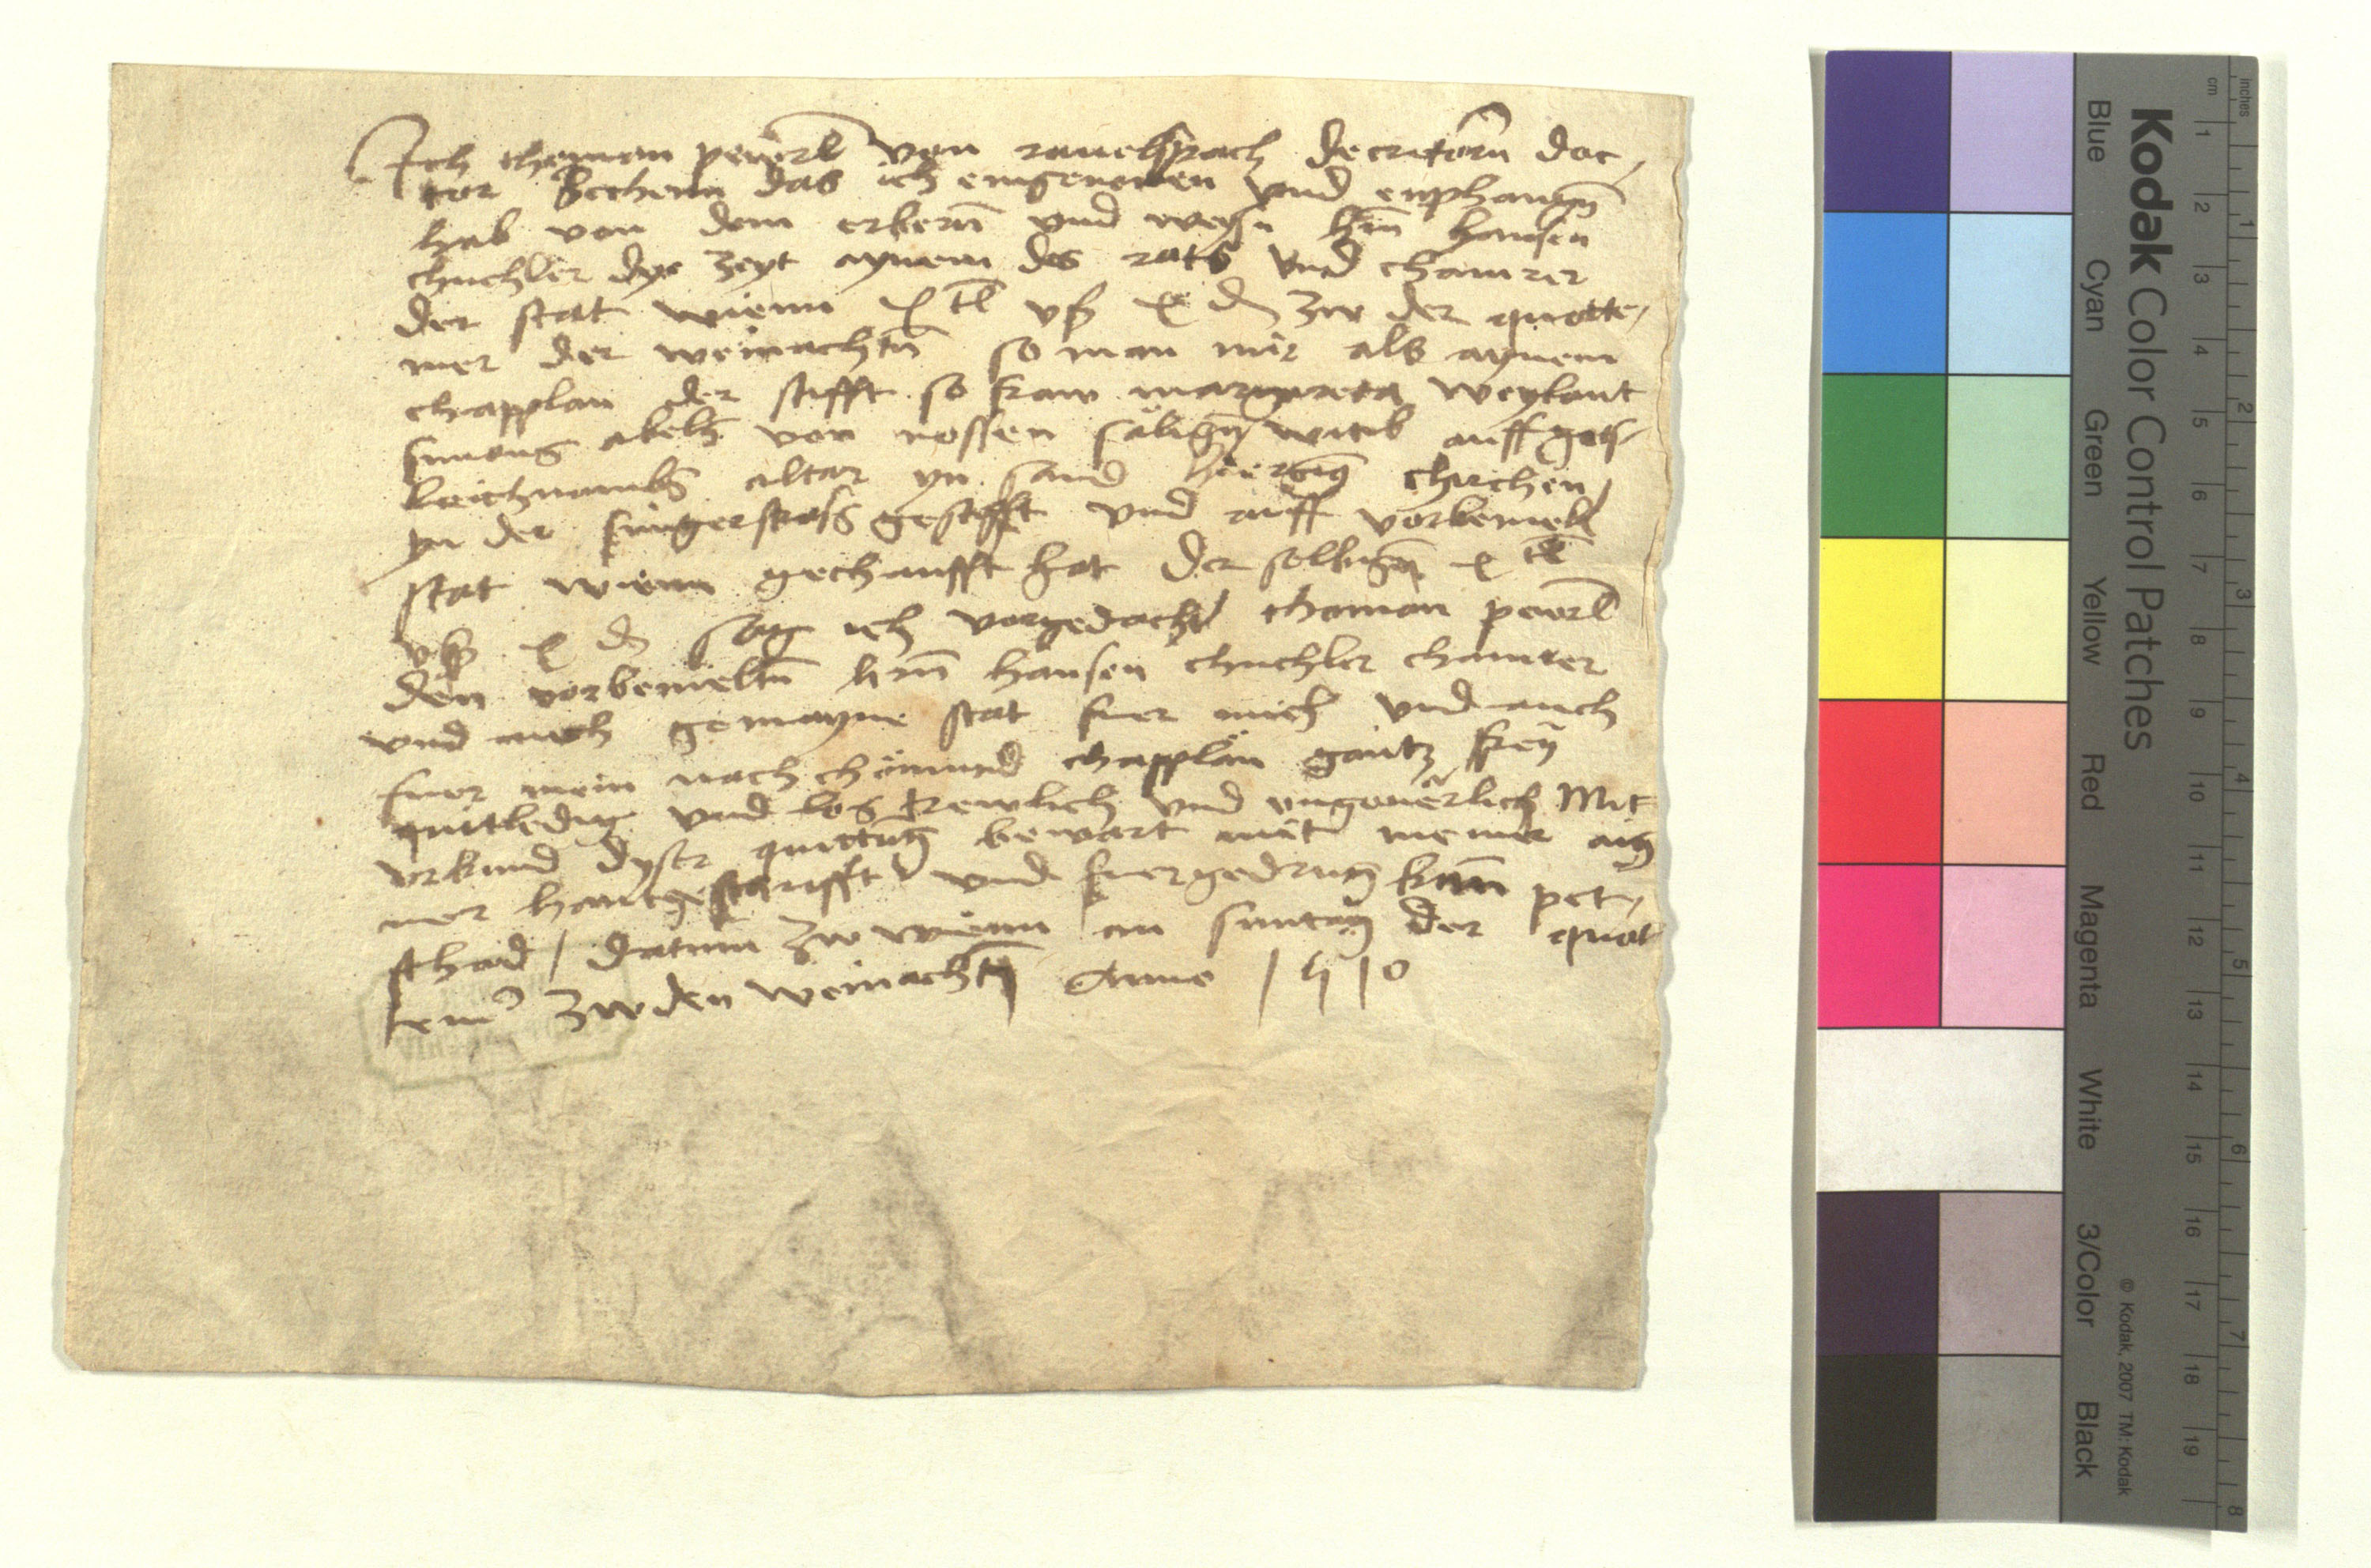 Ich thoman pewrl von rauelsprach decretorū doc-
tor Bechenn das ich eingenomen vnd enphangn̄
hab von dem erbern̄ vnd weysn hrn̄ hansen
chuchler dye zeyt aynem des rats vnd chamrer
der stat wienn x tl vß x d zw der quotte-
mer der weinachtn̄ so man mir als aynem
chapplan der stifft so fraw margareta weylant
simons abels von nossen sälign̄ witib auff gots
leichnambs altar yn sand chirchen
yn der singerstrass gestifft vnd auff vorbemelt
stat wienn gechaufft hat der selbign̄ x tl
vß x d sag ich vorgedacht thoman pewrl
den vorbemeltn̄ hrn̄ hansen chuchler chamrer
vnd auch gemayne stat fuer mich vnd auch
fuer mein nach chömund chapplän gantz frey
quitledig vnd los trewlich vnd vngeuërlich Mit
vrkund dyser quittūg bewart mit meiner aig
ner hantgeschrifft vnd fuergedrugtn̄ pet-
schad / datum zw wienn am suntag der quot
tem̄ zw den weinachtn̄ Anno 1510
Kodak Color Control Patches
Blue Cyan Green Yellow Red Magenta White 3/Color Black
© Kodak, 2007 TM: Kodak
cm 1 2 3 4 5 6 7 8 9 10 11 12 13 14 15 16 17 18 19
inches 1 2 3 4 5 6 7 8